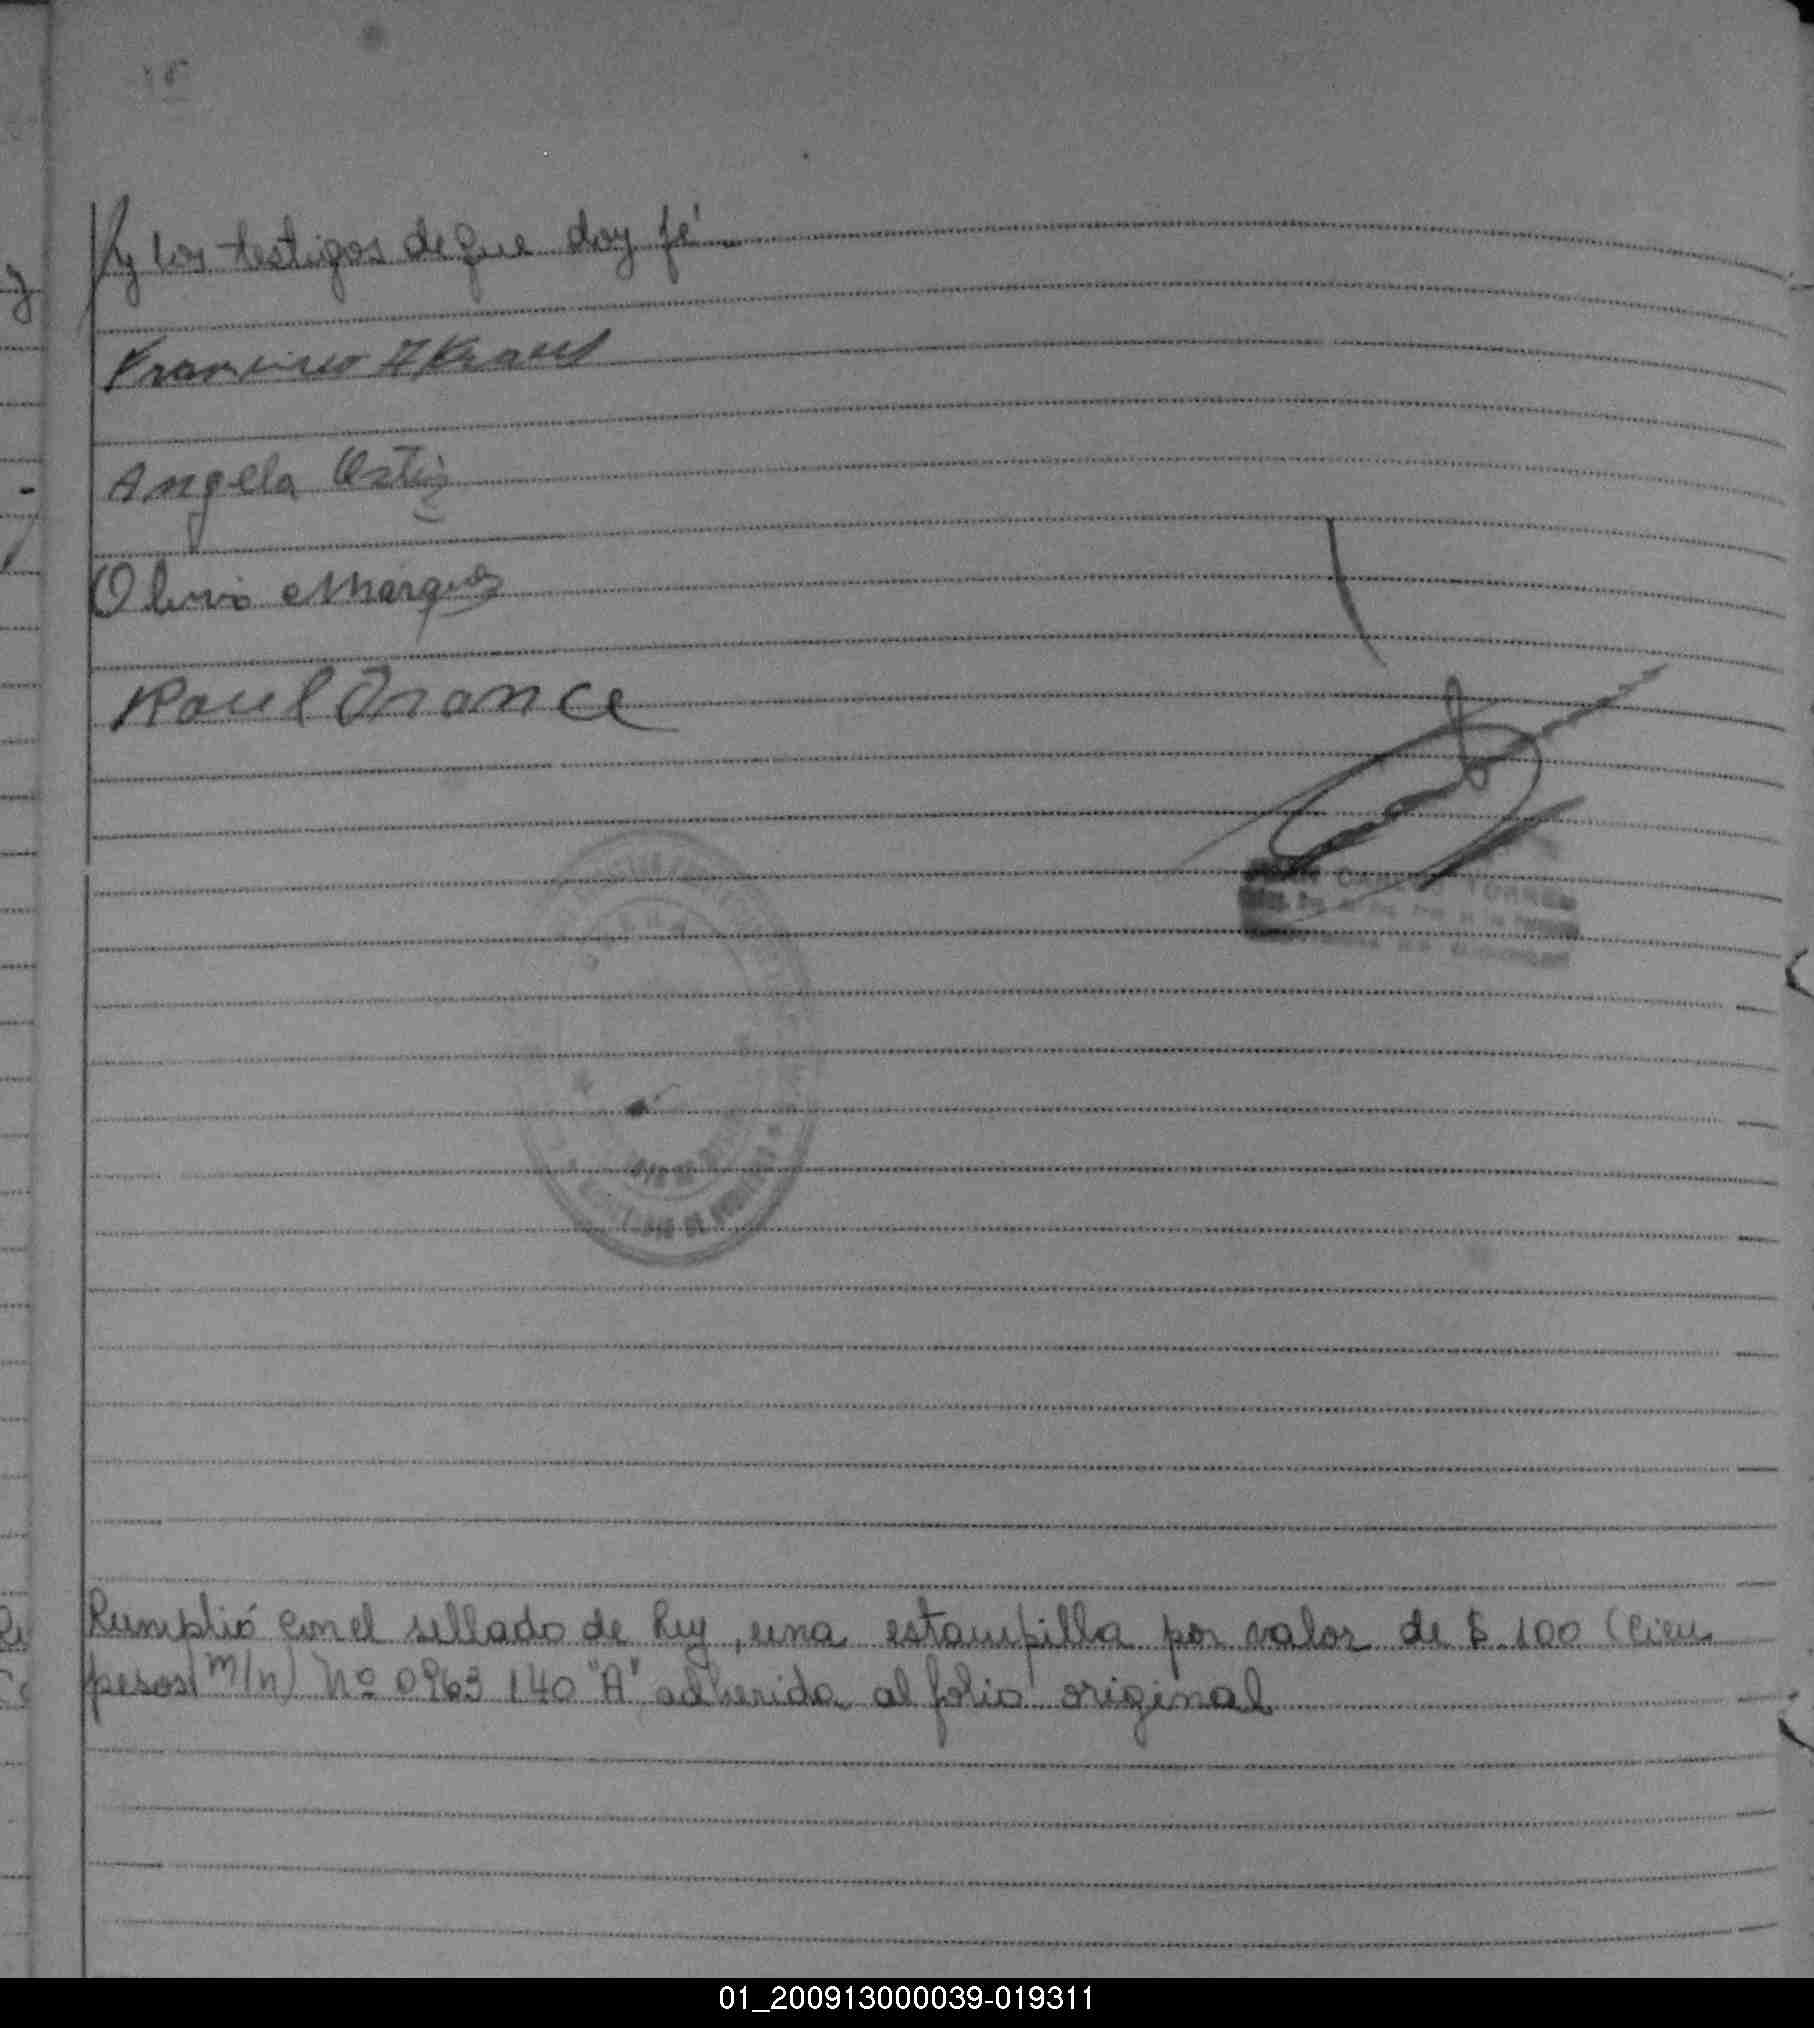 y los testigos de que doy fé
Francisco A Kraus
Angela Ostiz
Olivio Marquez
Raul Orance
Cumplió con el sellado de Ley, una estampilla por valor de $ 100 (Cien
pesos m/n) Nº 0963140 "A" adherida al folio original
01_200913000039-019311